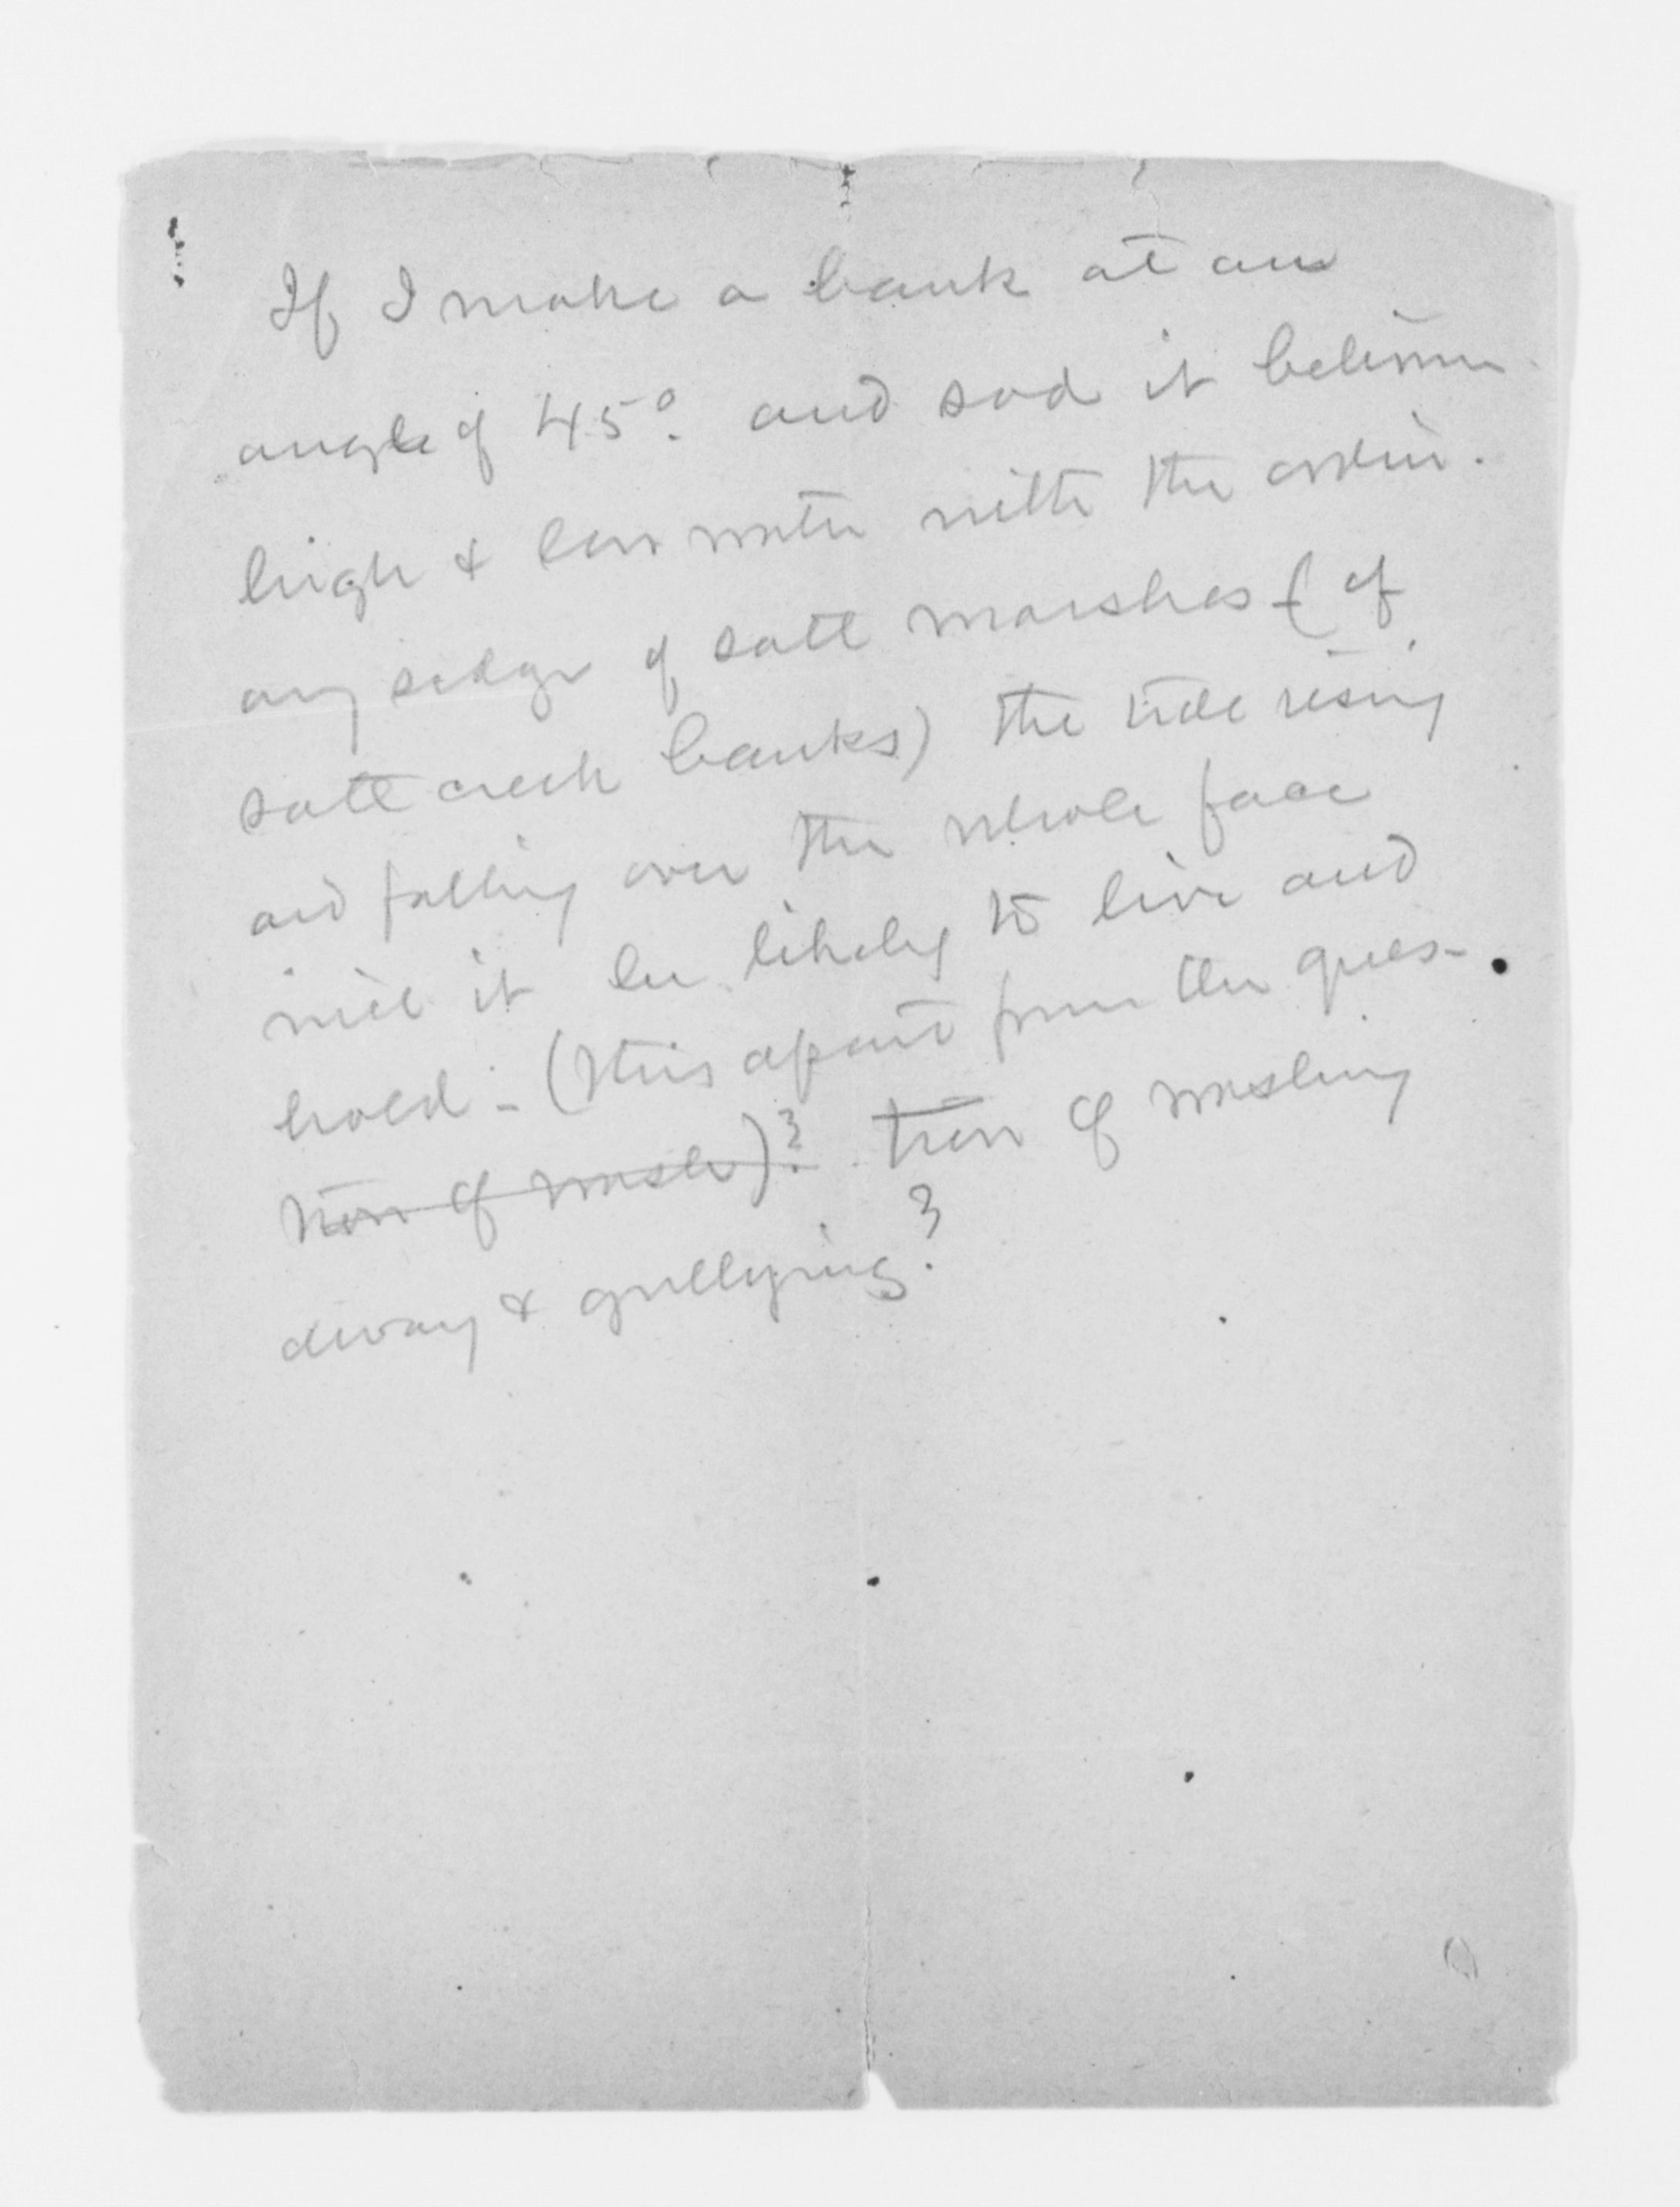 If I make a bank at an
angle of 45°. and sod it between
high & low water with the ordin-
ary sedge of salt marshes (of
salt creek banks) the tide rising
and falling over the whole face
will it be likely to live and
hold - (this apart from the ques-
tion of wash)? tion of washing
away & gullying?